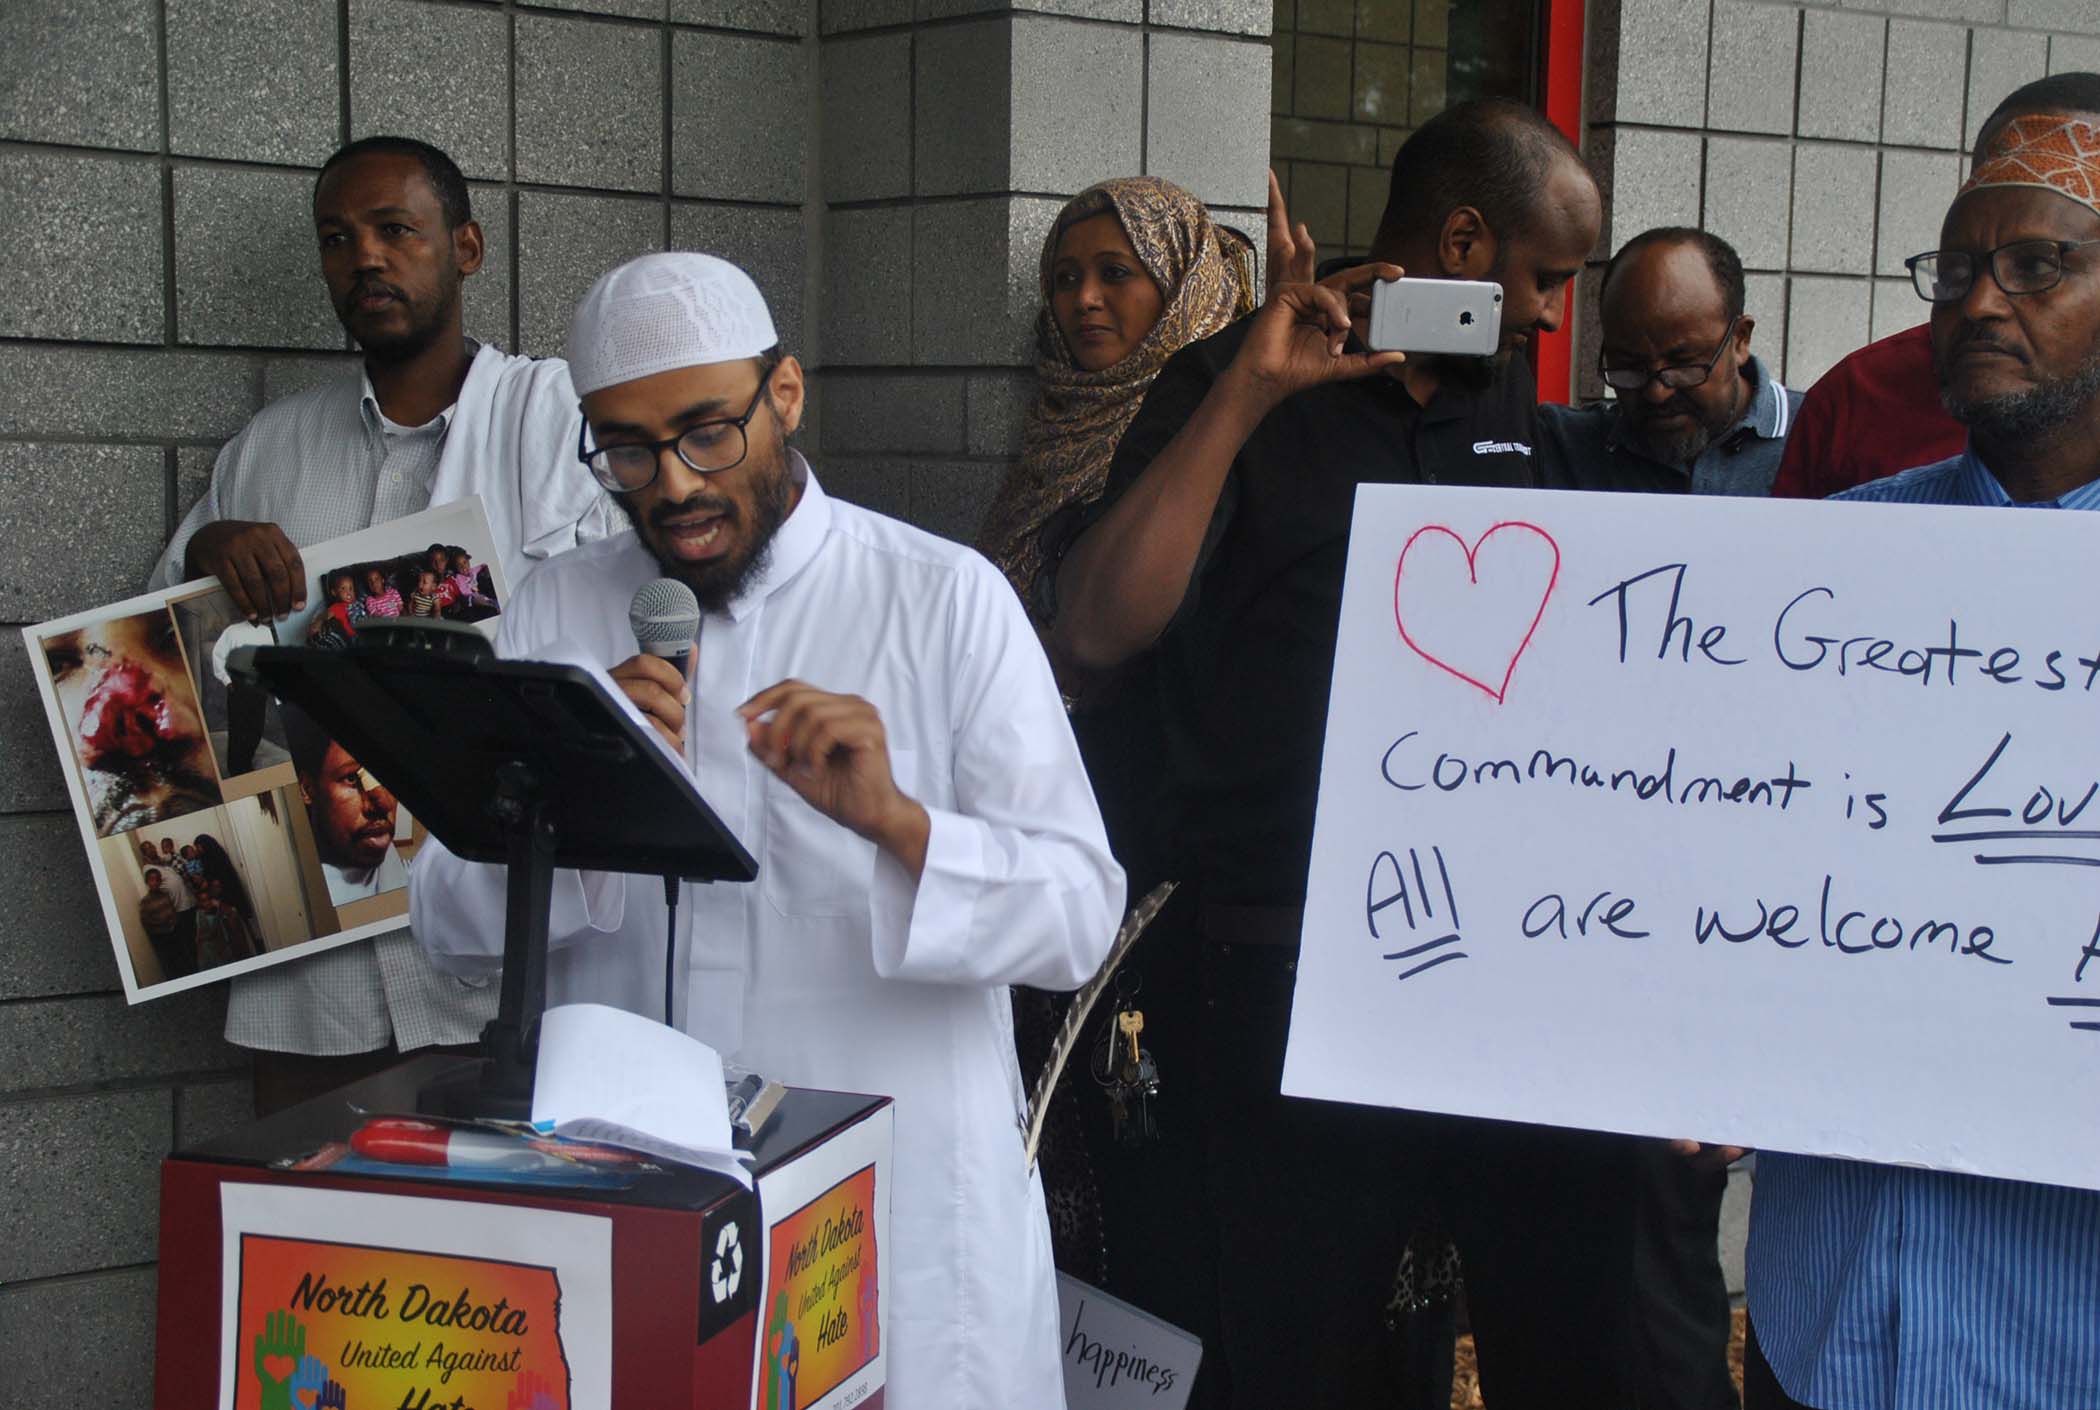 The Greatest
Commandment is
All are welcome
North Dakota
United Against
Hate
North Dakota
United Against
Hate
happiness